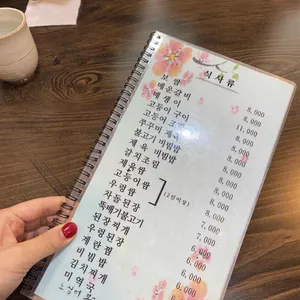 식사류
보쌈
매운갈비 8,000
매생이 8,000
고등어 구이 11,000
고등어 조림 8,000
쭈꾸미 제육 8,000
불고기 비빔밥 8,000
제육 비빔밥 8,000
갈치조림 8,000
제육쌈 9,000
고등어쌈 8,000
우렁쌈 (2인이상) 8,000
차돌된장 8,000
뚝배기불고기 7,000
된장찌개 7,000
우렁된장 6,000
계란찜 6,000
비빔밥 6,000
김치찌개 6,000
미역국